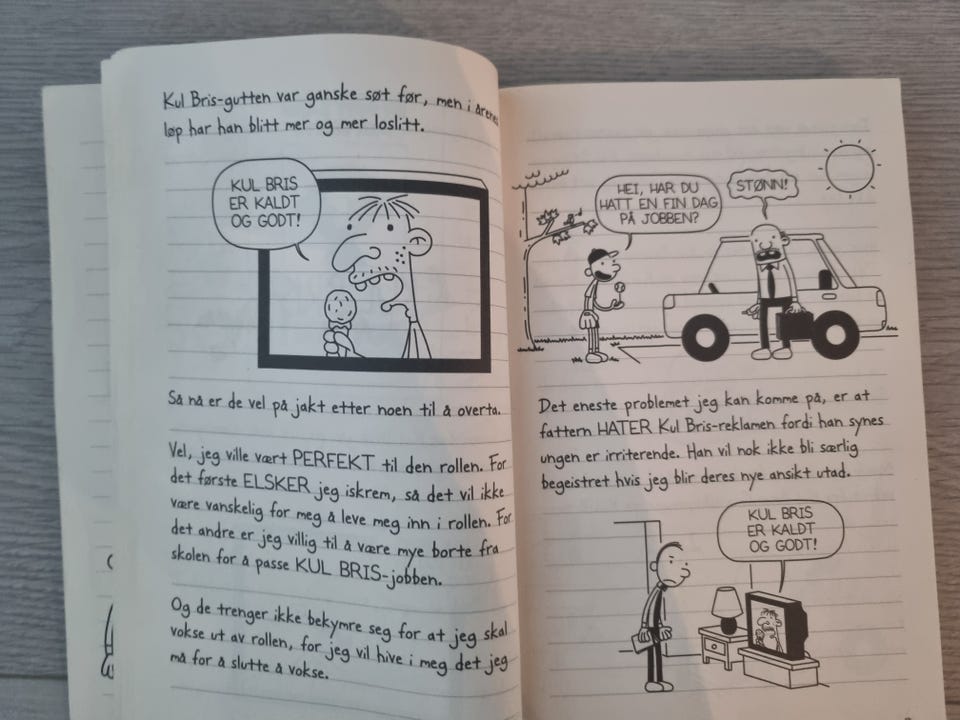 Kul Bris-gutten var ganske søt før, men i årenes
løp har han blitt mer og mer loslitt.
KUL BRIS
ER KALDT
OG GODT!
Så nå er de vel på jakt etter noen til å overta.
Vel, jeg ville vært PERFEKT til den rollen. For
det første ELSKER jeg iskrem, så det vil ikke
være vanskelig for meg å leve meg inn i rollen. For
det andre er jeg villig til å være mye borte fra
skolen for å passe KUL BRIS-jobben.
Og de trenger ikke bekymre seg for at jeg skal
vokse ut av rollen, for jeg vil hive i meg det jeg
må for å slutte å vokse.
HEI, HAR DU
HATT EN FIN DAG
PÅ JOBBEN?
STØNN!
Det eneste problemet jeg kan komme på, er at
fattern HATER Kul Bris-reklamen fordi han synes
ungen er irriterende. Han vil nok ikke bli særlig
begeistret hvis jeg blir deres nye ansikt utad.
KUL BRIS
ER KALDT
OG GODT!